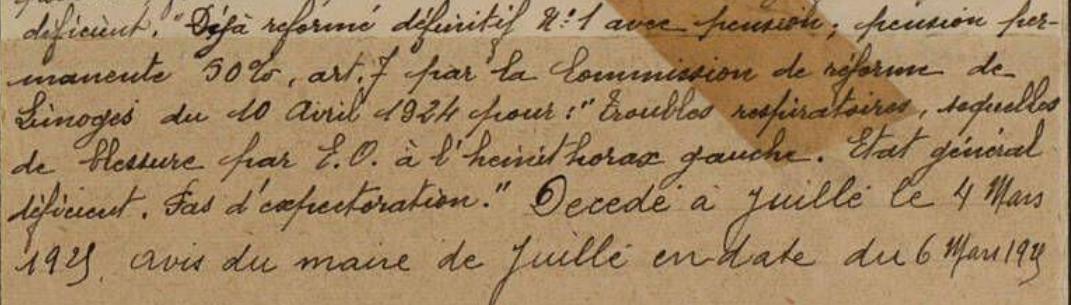 déficient." Déjà reformé définitif N° 1 avec pension; pension per-
manente 50%, art. 7 par la Commission de réforme de
Limoges du 10 Avril 1924 pour: "Troubles respiratoires, sequelles
de blessure par E.O. à l'hémithorax gauche. Etat général
déficient. Pas d'expectoration." Decedé à Juillé le 4 Mars
avis du maire de Juillé en date du 6 Mars